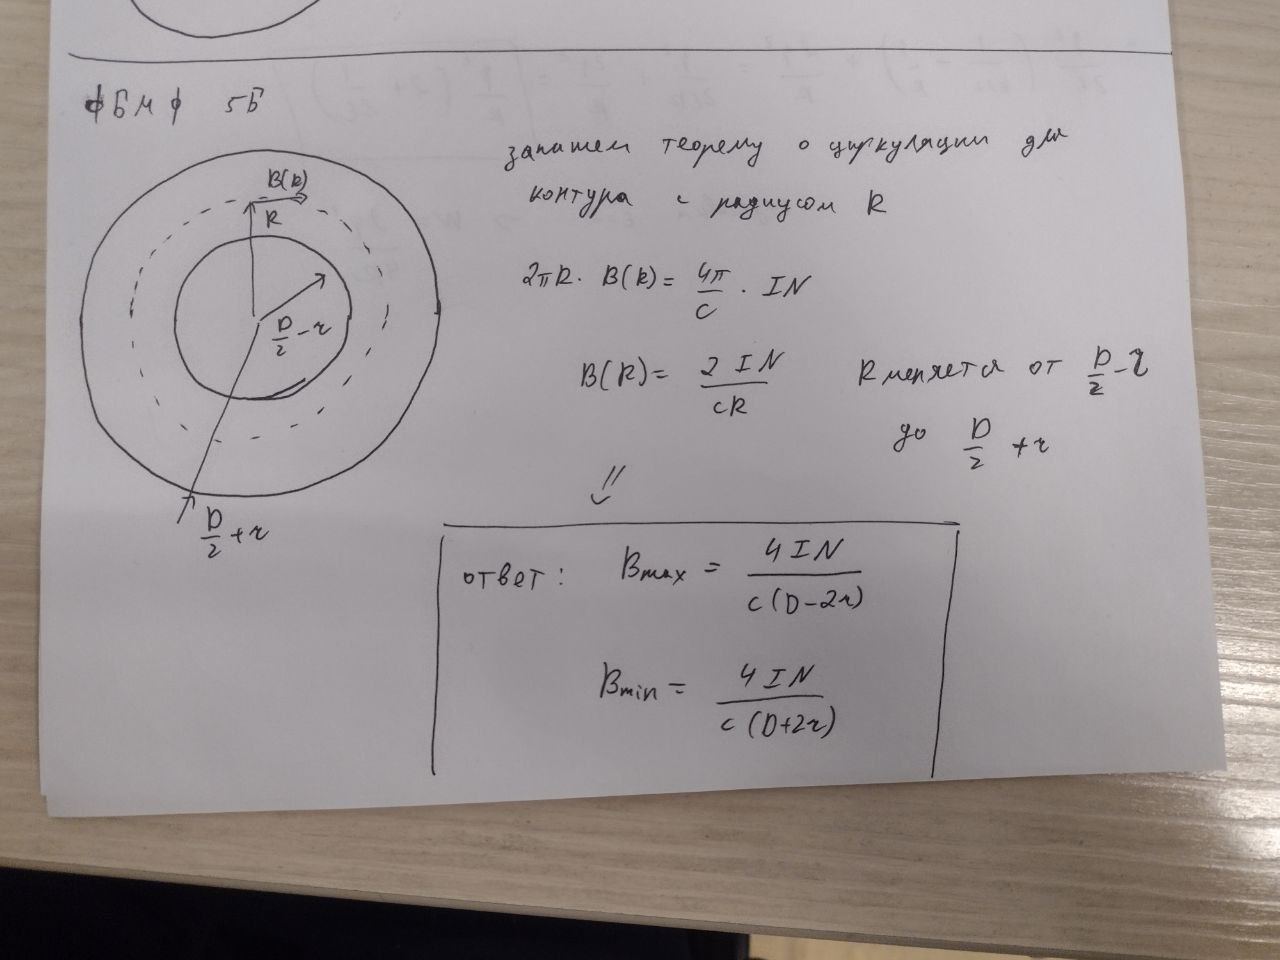 ФБМФ 5Б
B(R)
R
D/2 - r
D/2 + r
запишем теорему о циркуляции для
контура с радиусом R
2πR · B(R) = 4π/c · IN
B(R) = 2IN/cR
R меняется от D/2 - r
до D/2 + r
⇓
ответ: Bmax = 4IN/c(D-2r)
Bmin = 4IN/c(D+2r)